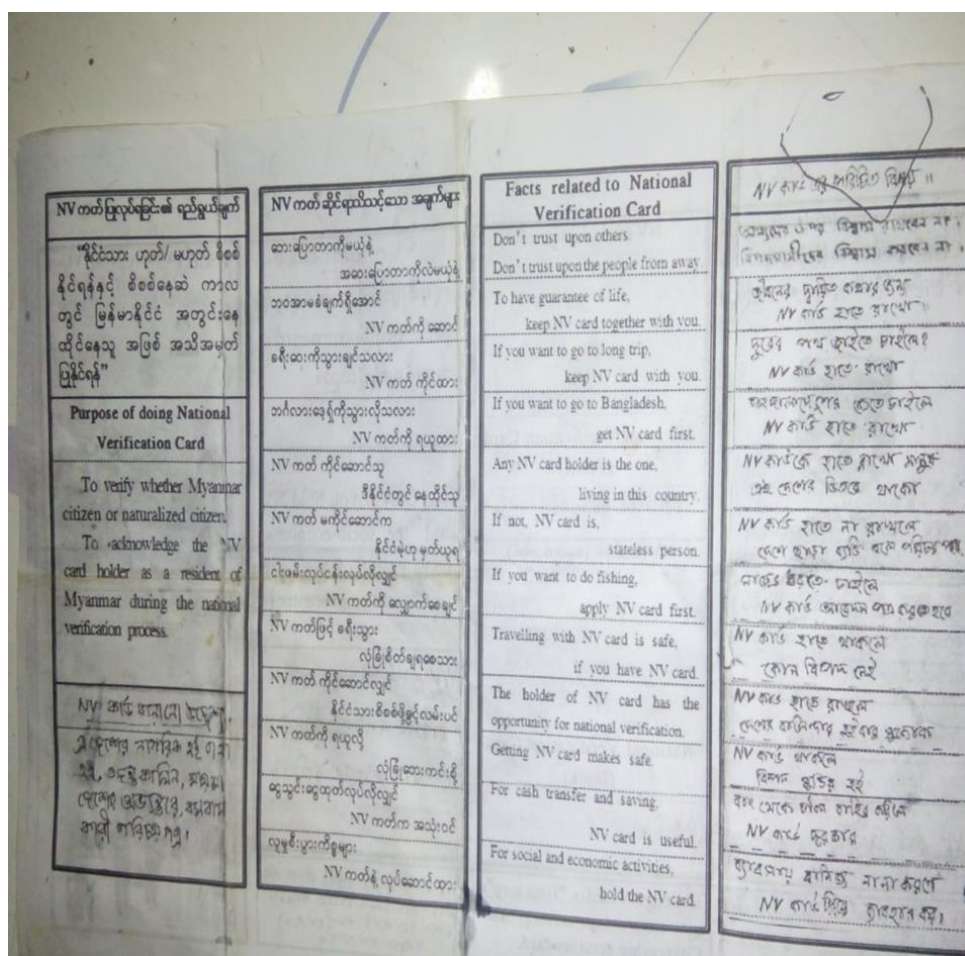 NV ကတ်ပြုလုပ်ရခြင်း၏ ရည်ရွယ်ချက်
"နိုင်ငံသား ဟုတ်/ မဟုတ် စိစစ်
နိုင်ရန်နှင့် စိစစ်နေဆဲ ကာလ
တွင် မြန်မာနိုင်ငံ အတွင်းနေ
ထိုင်နေသူ အဖြစ် အသိအမှတ်
ပြုနိုင်ရန်"
Purpose of doing National
Verification Card
To verify whether Myanmar
citizen or naturalized citizen.
To acknowledge the NV
card holder as a resident of
Myanmar during the national
verification process.
NV কার্ড বানানো উদ্দেশ্য
এ দেশের নাগরিক হই
দেশের
NV ကတ်ဆိုင်ရာသိသင့်သော အချက်များ
ဘေးပြောတာကိုမယုံနဲ့
အဝေးပြောတာကိုလဲမယုံနဲ့
ဘဝအာမခံချက်ရှိအောင်
NV ကတ်ကို ဆောင်
ခရီးဝေးကိုသွားချင်သလား
NV ကတ် ကိုင်ထား
ဘင်္ဂလားဒေ့ရှ်ကိုသွားလိုသလား
NV ကတ်ကို ရယူထား
NV ကတ် ကိုင်ဆောင်သူ
ဒီနိုင်ငံတွင် နေထိုင်သူ
NV ကတ် မကိုင်ဆောင်က
နိုင်ငံမဲ့ဟု မှတ်ယူရ
ငါးဖမ်းလုပ်ငန်းလုပ်လိုလျှင်
NV ကတ်ကို လျှောက်စေချင်
NV ကတ်ဖြင့် ခရီးသွား
လုံခြုံစိတ်ချရစေသား
NV ကတ် ကိုင်ဆောင်လျှင်
နိုင်ငံသားစိစစ်ဖို့ခွင့်လမ်းပင်
NV ကတ်ကို ရယူလို့
လုံခြုံဘေးကင်းစို့
ငွေသွင်းငွေထုတ်လုပ်လိုလျှင်
NV ကတ်က အသုံးဝင်
လူမှုစီးပွားကိစ္စများ
NV ကတ်နဲ့ လုပ်ဆောင်ထား
Facts related to National
Verification Card
Don't trust upon others.
Don't trust upon the people from away.
To have guarantee of life,
keep NV card together with you.
If you want to go to long trip,
keep NV card with you.
If you want to go to Bangladesh,
get NV card first.
Any NV card holder is the one,
living in this country.
If not, NV card is,
stateless person.
If you want to do fishing,
apply NV card first.
Travelling with NV card is safe,
if you have NV card.
The holder of NV card has the
opportunity for national verification.
Getting NV card makes safe.
For cash transfer and saving,
NV card is useful.
For social and economic activities,
hold the NV card.
NV কার্ড এর পরিচিতি বিষয় ॥
উপর বিশ্বাস রাখবেন না।
বিশ্বাস করবেন না।
জীবনের
NV কার্ড হাতে রাখো
দূরের পথ যাইতে চাইলে?
NV কার্ড হাতে রাখো
যেতে চাইলে
NV কার্ড হাতে রাখো
NV কার্ডকে হাতে রাখো
এই দেশের ভিতরে থাকো
NV কার্ড হাতে না রাখলে
দেশ ছাড়া
ধরতে চাইলে
NV কার্ড আবেদন পত্র করতে হবে
NV কার্ড হাতে থাকলে
কোন বিপদ নেই
NV কার্ড হাতে রাখলে
দেশের বাসিন্দার হইবার
NV কার্ড থাকলে
বিপদ
NV কার্ড দরকার
নানা
NV কার্ড